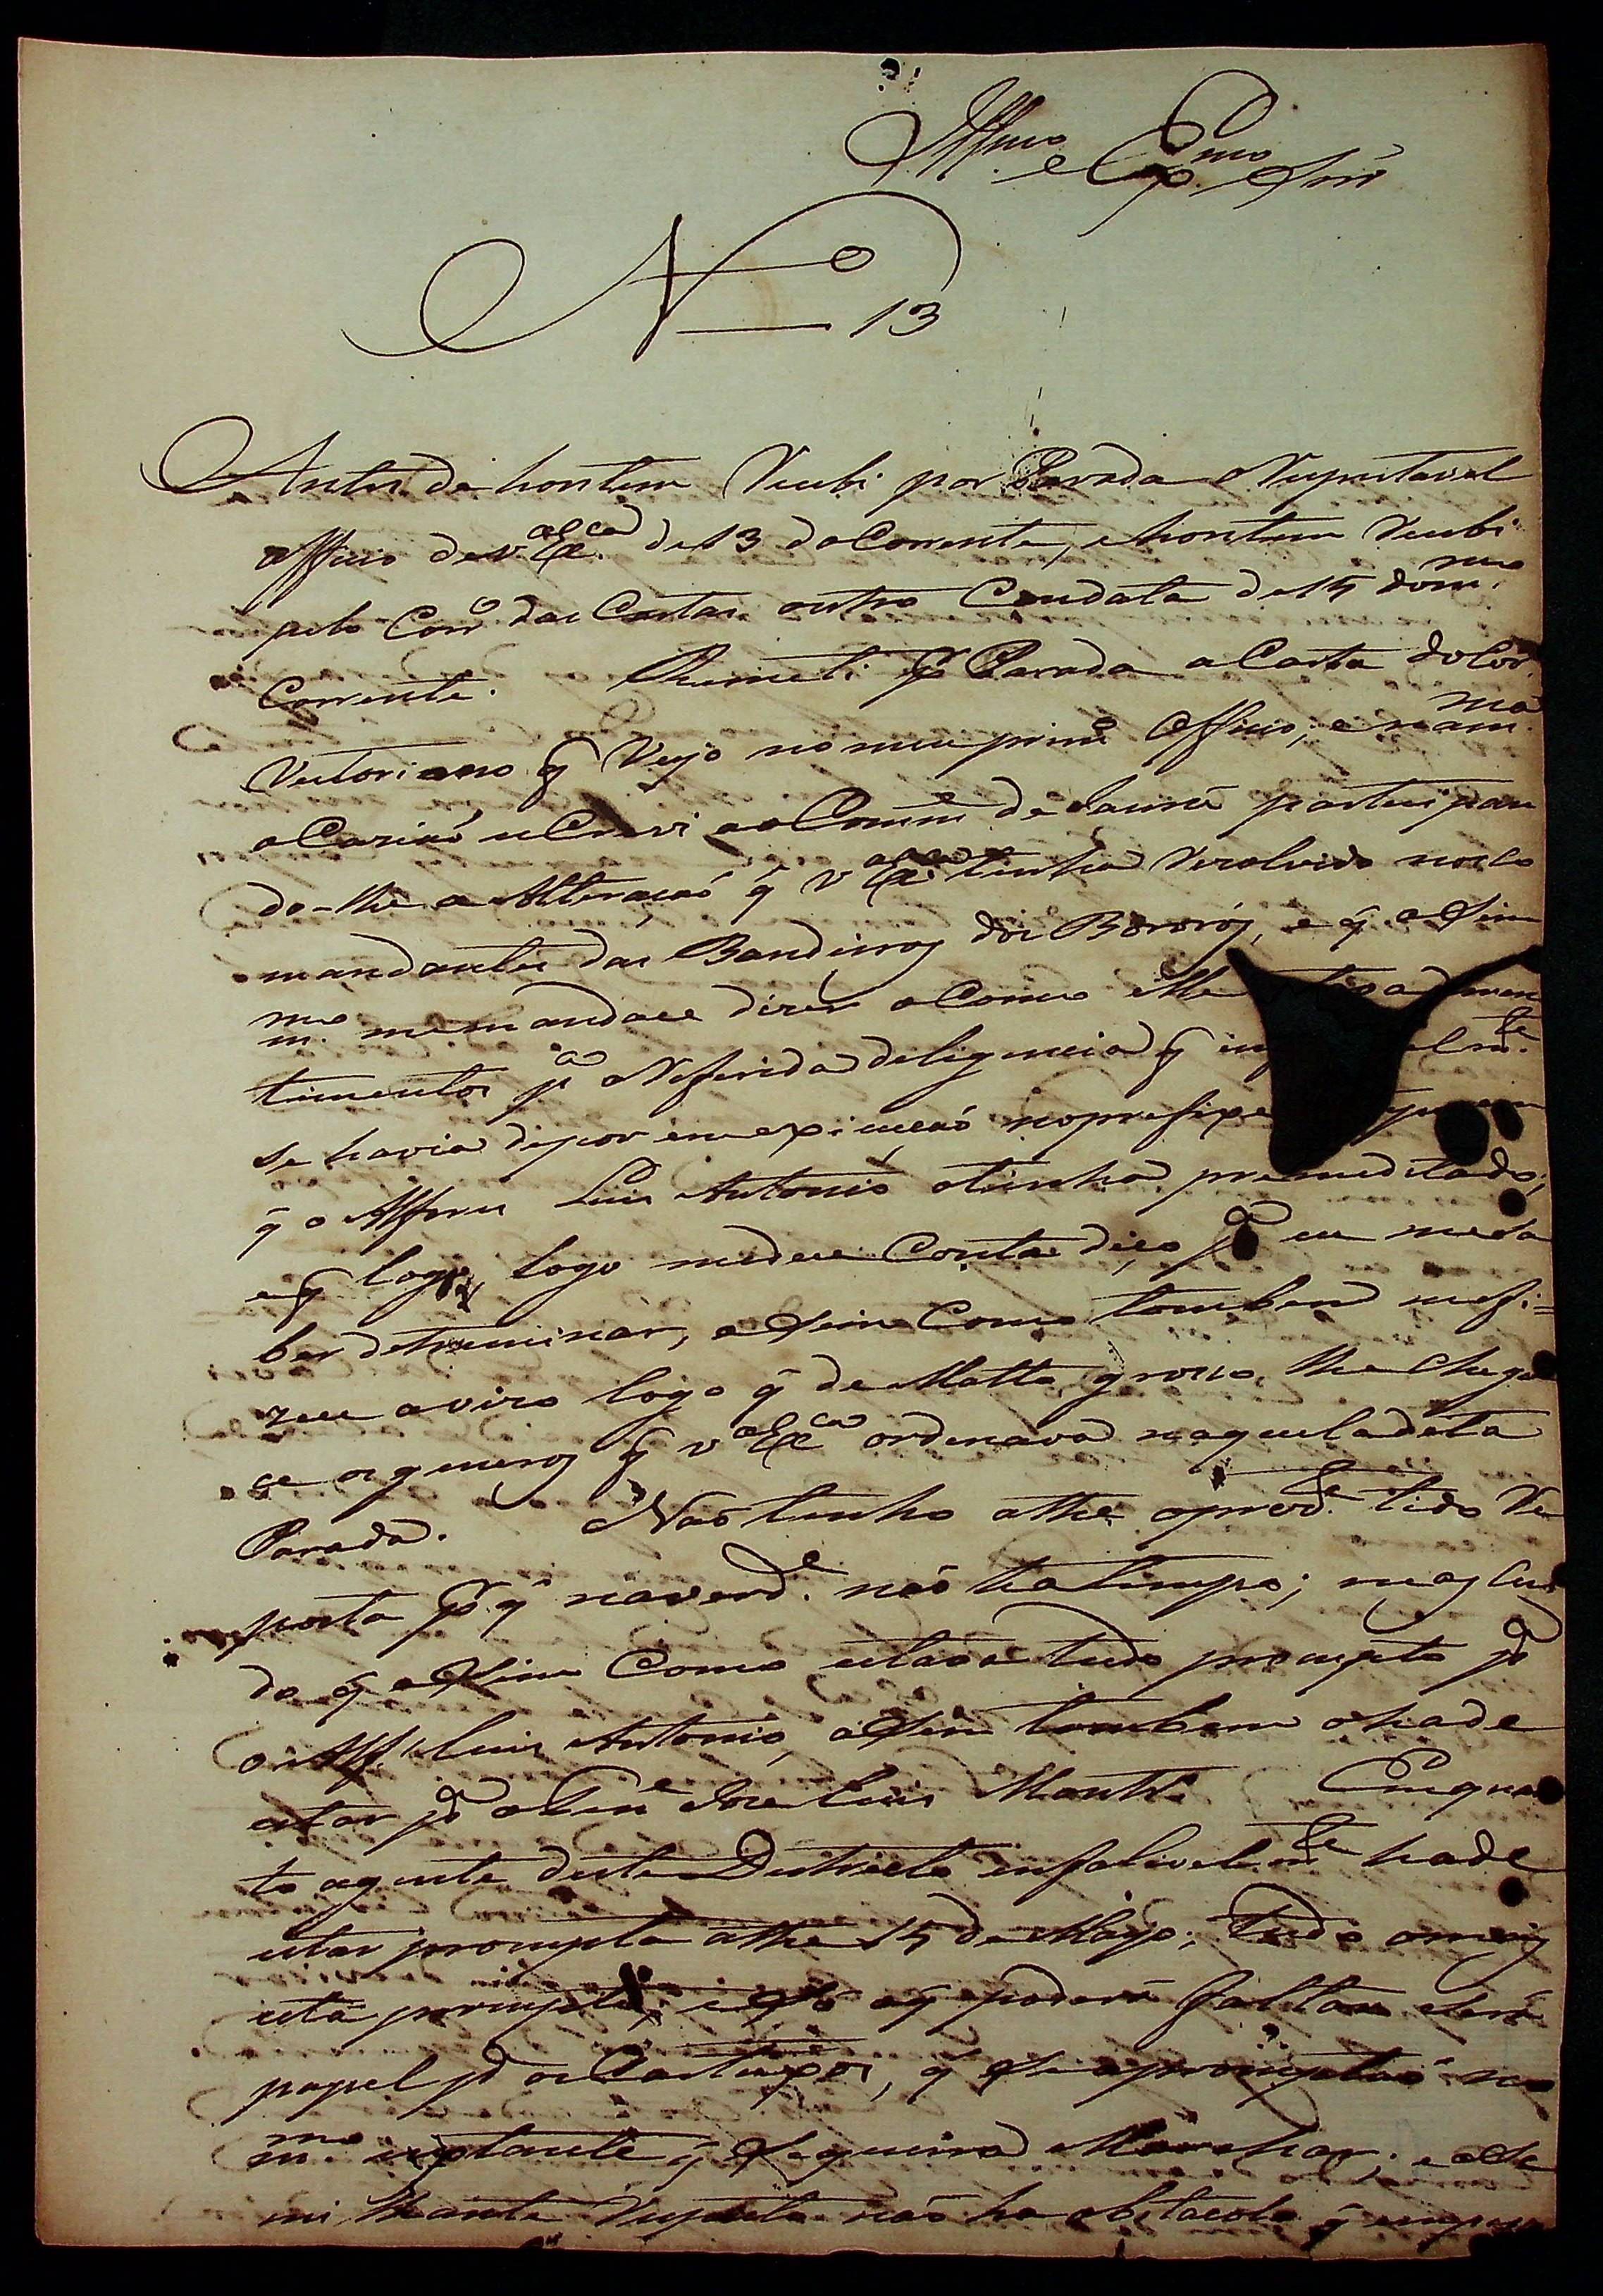 Illmo. e Exmo. Snr
No 13
Antes de hontem Recebi por Parada o Respeitavel
officio de V. Exca. de 13 do Corrente, e hontem Recebi
pelo Corro. das Cartas outro Com data de 15 do m.mo
Corrente. Remeti pr. Parada a Carta do Cor.
Victoriano q Vejo no meu primro. Officio; e na m.ma
ocaziaõ escrevi ao Comme. de Jaurú participan
do-lhe a Alteraçaõ q̃ V. Exca. tinha Rezolvido nos Co
mandantes das Bandeiras dos Bororós, e q̃ assim
m.mo me mandace dizer o Como elle
timentos pa. a Referida deligencia q̃
se havia de por em expiciçaõ no
q̃ o Alferes Luis Antonio o tinha premeditado;
e q̃ logo, logo me dece Conta disso pa. eu me sa
ber detreminár, assim Como tambem me fi=
zece avizo logo q̃ de Matto grosso lhe Chega
ce os generos q̃ V. Exca. ordenava naquela dita
Parada. Naõ tenho athe o prezte. tido Re
posta pr. q̃ na verde. naõ ha tempo; mas Cui
do q̃ assim Como estava tudo prompto pa.
o Alf. Luis Antonio, assim tambem o hade
estar pa. o Tene. Joze Luis Montr. Emquan
to a gente deste Destricto infalivelmte. hade
estar prompta athe 15 de Mayo; Tudo o mais
está prompto, e só o q̃ poderá faltar será
papel pa. os Cartuxos, q̃ se apromptaõ no
m.mo instante q̃ se queira Marchar; e a se
milhante Respeito naõ ha obstaculo q̃